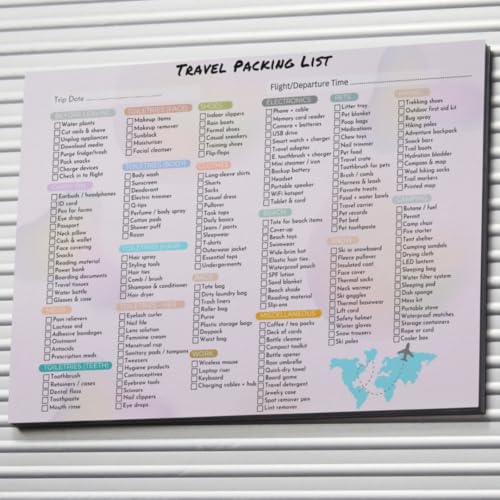 TRAVEL PACKING LIST
Trip Date
Flight/Departure Time
Water plants
Cut nails & shave
Unplug appliances
Download media
Purge fridge/trash
Pack snacks
Charge devices
Check in to flight
Earbuds / headphones
ID card
Pen for forms
Eye drops
Passport
Neck pillow
Cash & wallet
Face covering
Snacks
Reading material
Power bank
Boarding documents
Travel tissues
Water bottle
Glasses & case
Pain relievers
Lactose aid
Adhesive bandages
Ointment
Antacids
Prescription meds
TOILETRIES (TEETH)
Toothbrush
Retainers / cases
Dental floss
Toothpaste
Mouth rinse
TOILETRIES (FACE)
Makeup items
Makeup remover
Sunblock
Moisturiser
Facial cleanser
TOILETRIES (BODY)
Body wash
Sunscreen
Deodorant
Electric trimmer
Q-tips
Perfume / body spray
Cotton pads
Shower puff
Razor
TOILETRIES (HAIR)
Hair spray
Styling tools
Hair ties
Comb / brush
Shampoo & conditioner
Hair dryer
Eyelash curler
Nail file
Lens solution
Feminine cream
Menstrual cup
Sanitary pads / tampons
Tweezers
Hygiene products
Contraceptives
Eyebrow tools
Scissors
Nail clippers
Eye drops
SHOES
Indoor slippers
Rain boots
Formal shoes
Casual sneakers
Training shoes
Flip-flops
CLOTHES
Long-sleeve shirts
Shorts
Socks
Casual dress
Pullover
Tank tops
Daily basics
Jeans / pants
Sleepwear
T-shirts
Outerwear jacket
Essential tops
Undergarments
BAGS
Tote bag
Dirty laundry bag
Trash liners
Roller bag
Purse
Plastic storage bags
Daypack
Waist bag
WORK
Wireless mouse
Laptop riser
Keyboard
Charging cables + hub
ELECTRONICS
Phone + cable
Memory card reader
Camera + batteries
USB drive
Smart watch + charger
Travel adapter
E. toothbrush + charger
Mini steamer / iron
Backup battery
Headset
Portable speaker
WiFi hotspot
Tablet + charger
BEACH
Tote for beach items
Cover-up
Beach toys
Swimwear
Wide-brim hat
Elastic hair ties
Waterproof pouch
SPF lotion
Sand blanket
Beach shade
Reading material
Slip-ons
MISCELLANEOUS
Coffee / tea packs
Deck of cards
Bottle cleaner
Compact hairbrush
Bottle opener
Rain umbrella
Quick-dry towel
Board game
Travel detergent
Jewelry case
Spot remover pen
Lint remover
PETS
Litter tray
Pet blanket
Poop bags
Medications
Chew toys
Nail trimmer
Pet food
Travel crate
Toothbrush for pets
Brush / comb
Harness & leash
Favorite treats
Food + water bowls
Travel carrier
Pet records
Pet bed
Pet toothpaste
SNOW
Ski or snowboard
Fleece pullover
Insulated coat
Face cover
Thermal socks
Neck warmer
Ski goggles
Thermal basewear
Lift card
Safety helmet
Winter gloves
Snow trousers
Ski poles
HIKING
Trekking shoes
Outdoor first aid kit
Bug spray
Hiking poles
Adventure backpack
Snack bars
Trail boots
Hydration bladder
Compass & map
Wool hiking socks
Trail markers
Printed map
CAMPING
Butane / fuel
Permit
Camp chair
Fire starter
Tent shelter
Camping sandals
Drying cloth
LED lantern
Sleeping bag
Water filter system
Sleeping pad
Dish sponge
Mess kit
Portable stove
Waterproof matches
Storage containers
Rope or cord
Cooler box